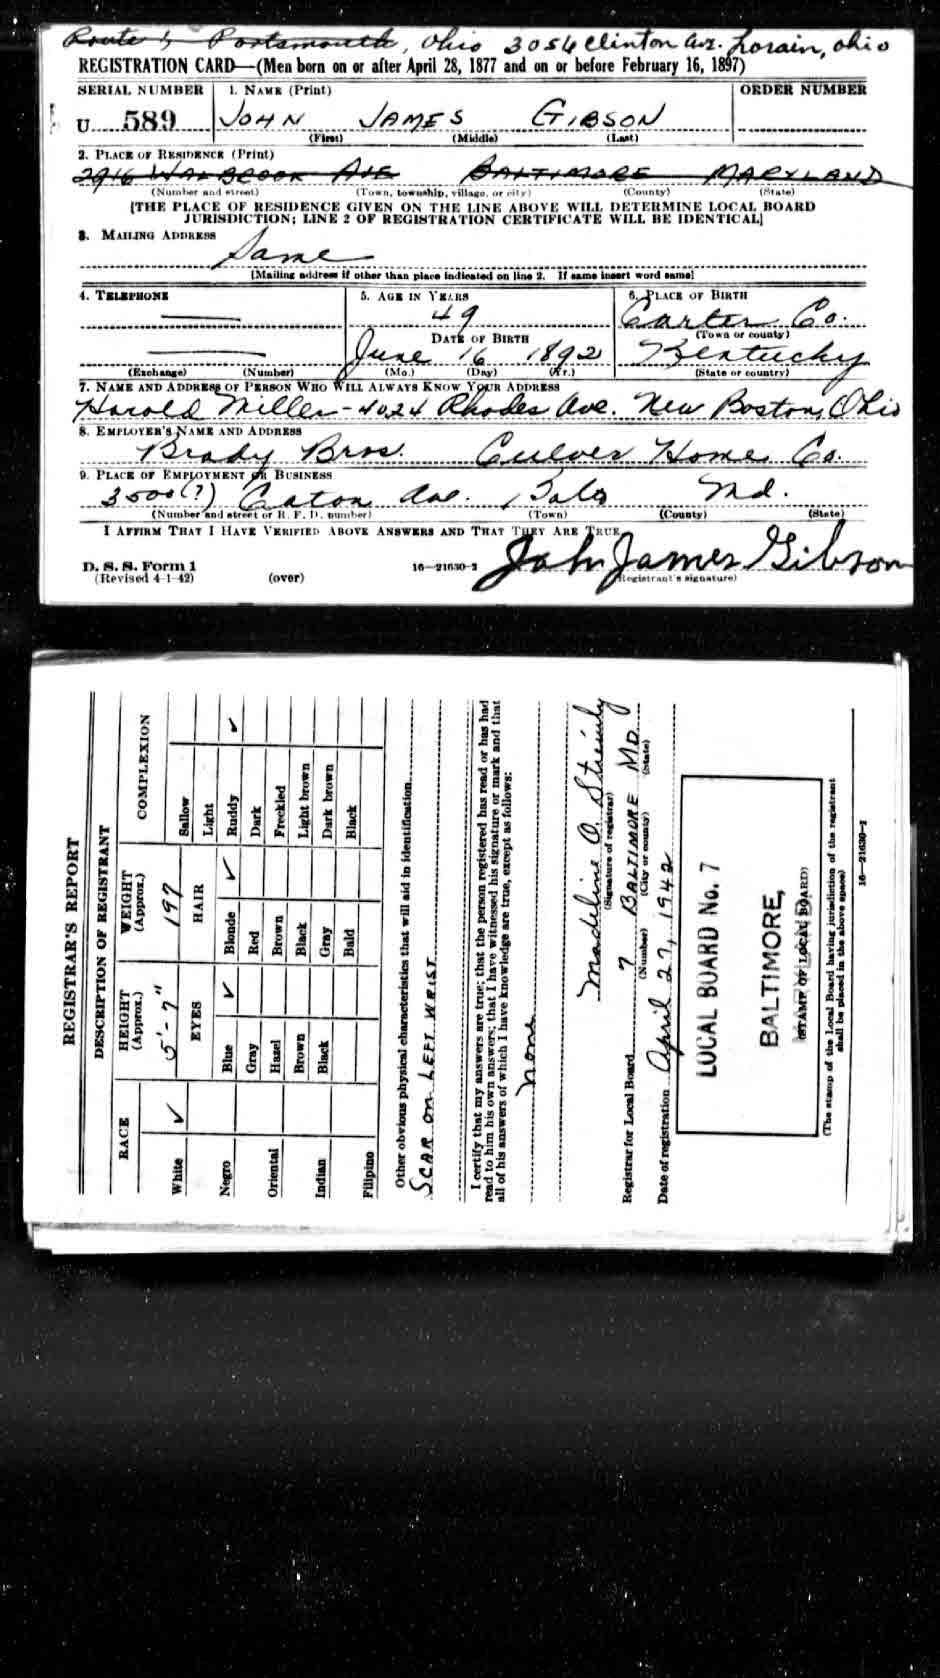 Route 5 Portsmouth, Ohio 3056 Clinton Ave. Lorain, Ohio
REGISTRATION CARD—(Men born on or after April 28, 1877 and on or before February 16, 1897)
SERIAL NUMBER 1. NAME (Print) ORDER NUMBER
U 589 JOHN JAMES GIBSON
(First) (Middle) (Last)
2. PLACE OF RESIDENCE (Print)
2916 WALBROOK AVE BALTIMORE MARYLAND
(Number and street) (Town, township, village, or city) (County) (State)
[THE PLACE OF RESIDENCE GIVEN ON THE LINE ABOVE WILL DETERMINE LOCAL BOARD
JURISDICTION; LINE 2 OF REGISTRATION CERTIFICATE WILL BE IDENTICAL]
3. MAILING ADDRESS
Same
[Mailing address if other than place indicated on line 2. If same insert word same]
4. TELEPHONE 5. AGE IN YEARS 6. PLACE OF BIRTH
49 Carter Co.
DATE OF BIRTH (Town or county)
June 16 1892 Kentucky
(Exchange) (Number) (Mo.) (Day) (Yr.) (State or country)
7. NAME AND ADDRESS OF PERSON WHO WILL ALWAYS KNOW YOUR ADDRESS
Harold Miller - 4024 Rhodes Ave. New Boston, Ohio
8. EMPLOYER'S NAME AND ADDRESS
Brady Bros. Culver Home Co.
9. PLACE OF EMPLOYMENT OR BUSINESS
3500(?) Caton Ave. Balto Md.
(Number and street or R. F. D. number) (Town) (County) (State)
I AFFIRM THAT I HAVE VERIFIED ABOVE ANSWERS AND THAT THEY ARE TRUE.
D. S. S. Form 1 John James Gibson
(Revised 4-1-42) (over) 16—21630-2 (Registrant's signature)
REGISTRAR'S REPORT
DESCRIPTION OF REGISTRANT
RACE HEIGHT (Approx.) WEIGHT (Approx.) COMPLEXION
5'-7" 197
White ✓ EYES HAIR Sallow
Light
Negro Blue ✓ Blonde ✓ Ruddy ✓
Gray Red Dark
Oriental Hazel Brown Freckled
Brown Black Light brown
Indian Black Gray Dark brown
Filipino Bald Black
Other obvious physical characteristics that will aid in identification
SCAR ON LEFT WRIST
I certify that my answers are true; that the person registered has read or has had
read to him his own answers; that I have witnessed his signature or mark and that
all of his answers of which I have knowledge are true, except as follows:
None
Madeline O.
(Signature of registrar)
Registrar for Local Board 7 BALTIMORE MD
(Number) (City or county) (State)
Date of registration April 27, 1942
LOCAL BOARD No. 7
BALTIMORE,
MARYLAND
(STAMP OF LOCAL BOARD)
(The stamp of the Local Board having jurisdiction of the registrant
shall be placed in the above space)
16—21630-2